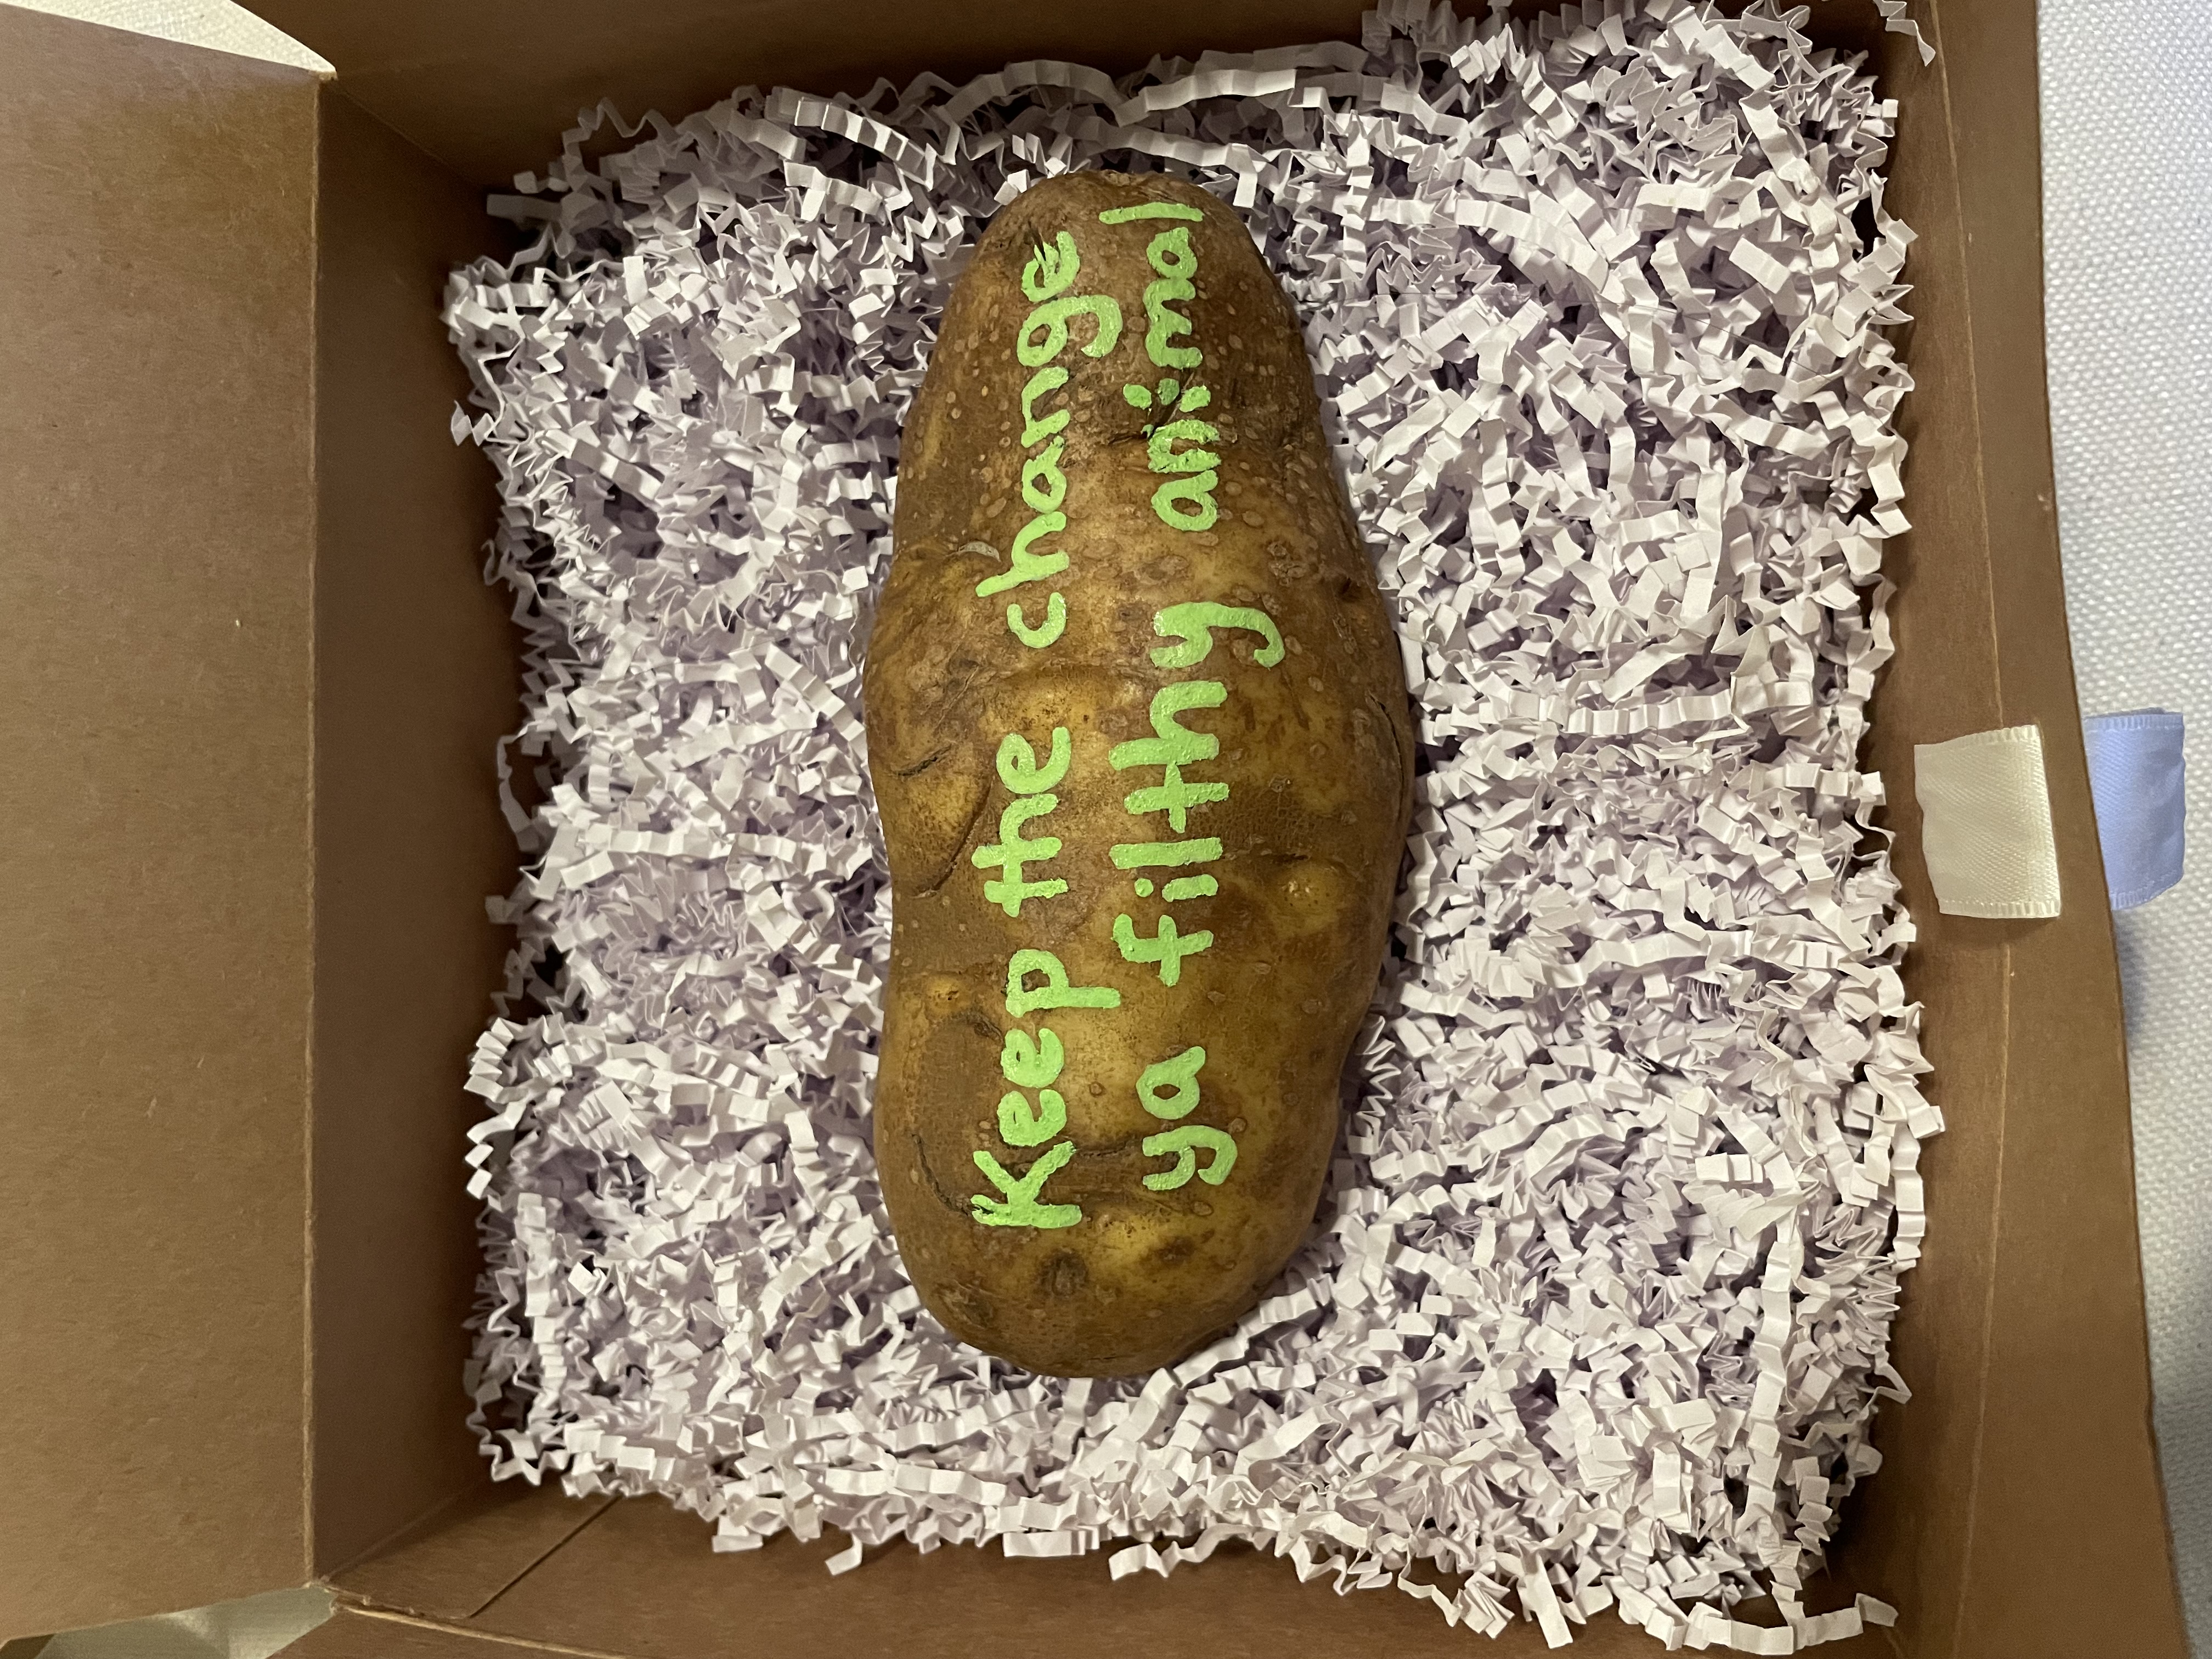 Keep the change
ya filthy animal